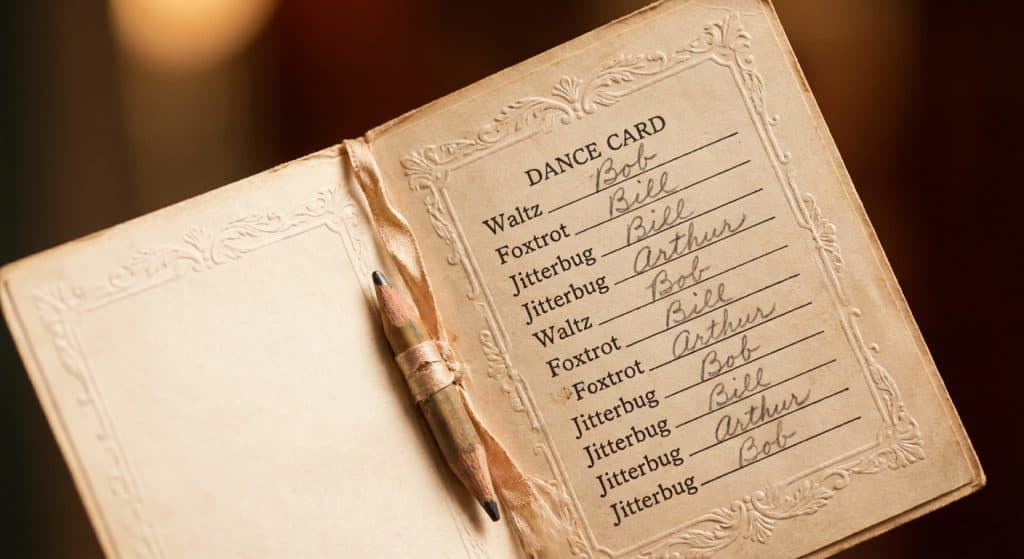 DANCE CARD
Waltz Bob
Foxtrot Bill
Jitterbug Bill
Jitterbug Arthur
Waltz Bob
Foxtrot Bill
Foxtrot Arthur
Jitterbug Bob
Jitterbug Bill
Jitterbug Arthur
Jitterbug Bob